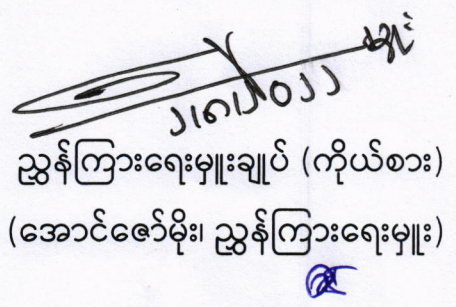 ၂၊၈၊၂၀၂၂
ညွှန်ကြားရေးမှူးချုပ် (ကိုယ်စား)
(အောင်ဇော်မိုး၊ ညွှန်ကြားရေးမှူး)